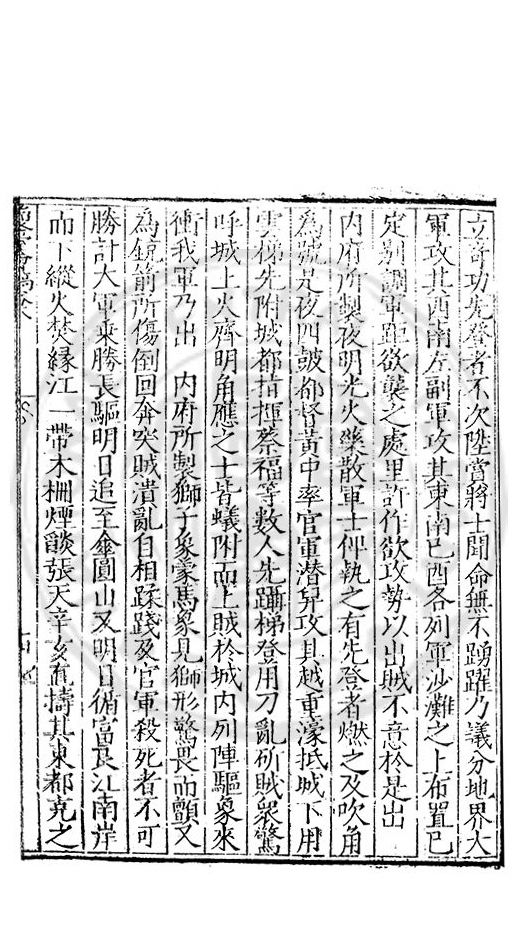 立奇功先登者不次陞賞將士聞命無不踴躍乃議分地界大
軍攻其西南左副軍攻其東南已酉各列軍沙灘之上布置已
定别調軍距欲襲之處里許作欲攻勢以出賊不意於是出
内府所製夜明光火藥散軍士俾執之有先登者燃之及吹角
為號是夜四皷都督黄中率官軍潜舁攻具越重濠抵城下用
雲梯先附城都指揮蔡福等數人先躡梯登用刀亂斫賊衆驚
呼城上火齊明角應之士皆蟻附而上賊於城内列陣驅象來
衝我軍乃出 内府所製獅子象蒙馬象見獅形驚畏而顫又
為銃箭所傷倒回奔突賊潰亂自相蹂踐及官軍殺死者不可
勝計大軍乘勝長驅明日追至傘圓山又明日循富良江南岸
而下縱火焚縁江一帶木栅煙燄張天辛亥直擣其東都克之